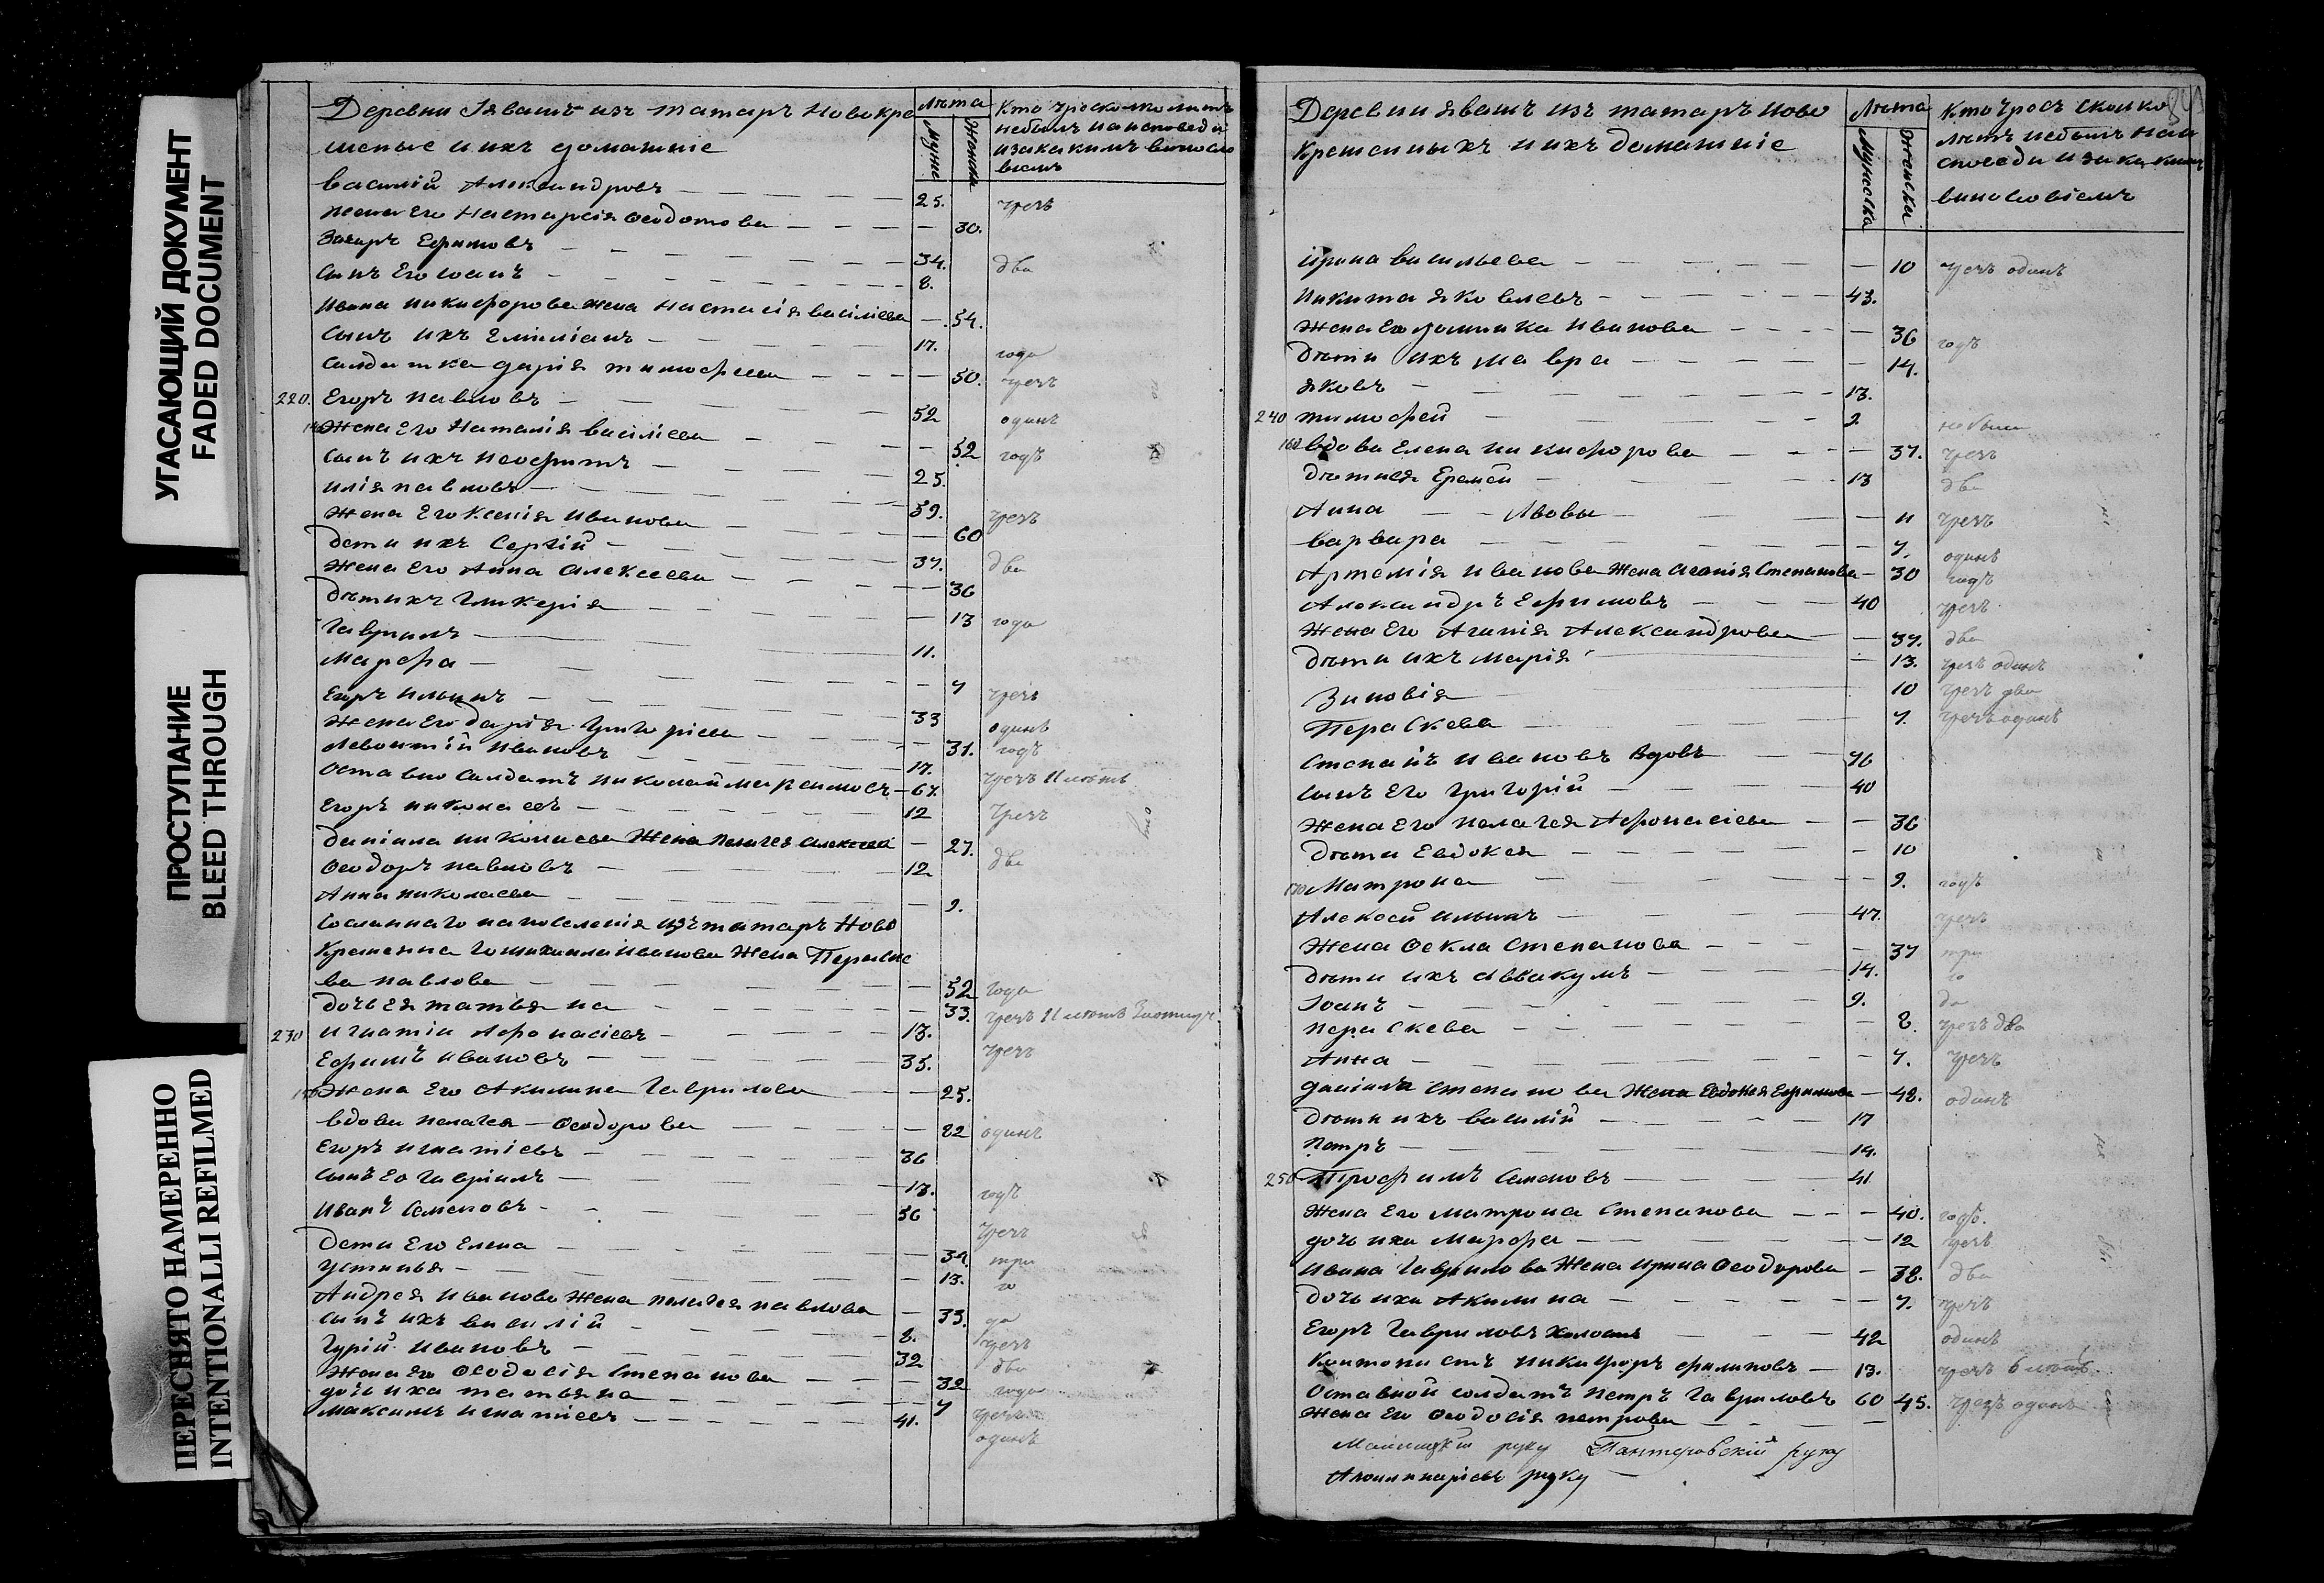 УГАСАЮЩИЙ ДОКУМЕНТ
FADED DOCUMENT
ПРОСТУПАНИЕ
BLEED THROUGH
ПЕРЕСНЯТО НАМЕРЕННО
INTENTIONALLI REFILMED
Деревни Явашъ изъ татаръ новокре
щеные и ихъ домашніе
Лѣта
Мужс
Женска
Кто чрескол
небылъ на исповеди
Василій Александровъ 25. чрезъ
жена его Настасія Ѳеодотова 30.
Захаръ Ефимовъ 34. два
сынъ его Іоанъ 8.
Ивана Никифорова жена Настасія Василіева 54.
сынъ ихъ Еміліанъ 17. года
Салдатка Дарія Тимофеева 50. чрезъ
220. Егоръ Павловъ 52 одинъ
жена его Наталія Василіева 52 годъ
сынъ ихъ Неофитъ 25.
Илія Павловъ 59. чрезъ
жена его Ксенія Иванова 60
дети ихъ Сергій 37. два
жена его Анна Алексеева 36
дѣти ихъ Гликерія 13 года
Гавриилъ 11.
Марфа 7 чрезъ
Егоръ Ильинъ 33 одинъ
жена его Дарія Григоріева 31. годъ
Левонтій Ивановъ 17.
Оставно Салдатъ Николай Максимовъ 67. чрезъ 11 летъ
Егоръ Николаевъ 12 чрезъ
Даніила Николаева жена Пелагея Алексеева 27. два
Ѳеодоръ Павловъ 12
Анна Николаева 9.
Сосланнаго на поселенія изъ татаръ ново
крещеннаго Михаила Иванова жена Параске
ва Павлова 52 года
дочь ея Татьяна 33. чрезъ 11 летъ
230 Игнатіи Афонасіевъ 13. чрезъ
Ефимъ Ивановъ 35.
жена его Акилина Гаврилова 25.
вдова Пелагея Ѳеодорова 82 одинъ
Егоръ Игнатіевъ 36
сынъ ео Гавріилъ 13. годъ
Иванъ Семеновъ 56 чрезъ
Дети его Елена 39. три
Устинья 13. го
Андрея Иванова жена Пелагея Павлова 33. да
сынъ ихъ Василій 8. чрезъ
Гурій Ивановъ 32 два
жена его Ѳеодосія Степанова 32 года
дочь ихъ Татьяна 7 чрезъ
Максимъ Игнатіевъ 41. одинъ
Деревни Явашъ изъ татаръ ново
крещеныхъ и ихъ домашніе
Лѣта
Мужеска
Женска
Кто чрезъ сколко
лѣтъ небылъ наи
споведи и за какимъ
виносовіемъ
Ирина Васильева 10 чрезъ одинъ
Никита Яковлевъ 43.
жена его Домника Иванова 36 годъ
дѣти ихъ Мавра 14.
Яковъ 13.
240 Тимофей 2. небылъ
вдова Елена Никифорова 37. чрезъ
дѣти ея Еремѣй 13 два
Анна Львовы 11 чрезъ
Варвара 7. одинъ
Артемія Иванова жена Агапія Степанова 30 годъ
Александръ Ефимовъ 40 чрезъ
жена его Агапія Александрова 37. два
дѣти ихъ Марія 13. чрезъ одинъ
Зиновія 10 чрезъ два
Пераскева 7. чрезъ одинъ
Степанъ Ивановъ вдовъ 76
сынъ его Григорій 40
жена его Пелагея Афонасіева 36
дѣти Евдокея 10
170 Матрона 9. годъ
Алексей Ильинъ 47. чрезъ
жена Ѳекла Степанова 37 три
дѣти ихъ Аввакумъ 14. го
Іоанъ 9. да
Пераскева 8. чрезъ два
Анна 7. чрезъ
Даніила Степанова жена Евдокея Ефимова 48. одинъ
дѣти ихъ Василій 17
Петръ 14.
250 Трофимъ Семеновъ 41
жена его Матрона Степанова 40. годъ.
дочь ихъ Марфа 12 чрезъ
Ивана Гаврилова жена Ирина Ѳеодорова 38. два
дочь ихъ Акилина 7. чрезъ
Егоръ Гавриловъ холостъ 42 одинъ
Кантонистъ Никифоръ Филиповъ 13. чрезъ 6 летъ
Оставной солдатъ Петръ Гавриловъ 60 45. чрезъ одинъ
жена его Ѳеодосія Петрова
руку Пантеровскій руку
Аполинаріевъ руку